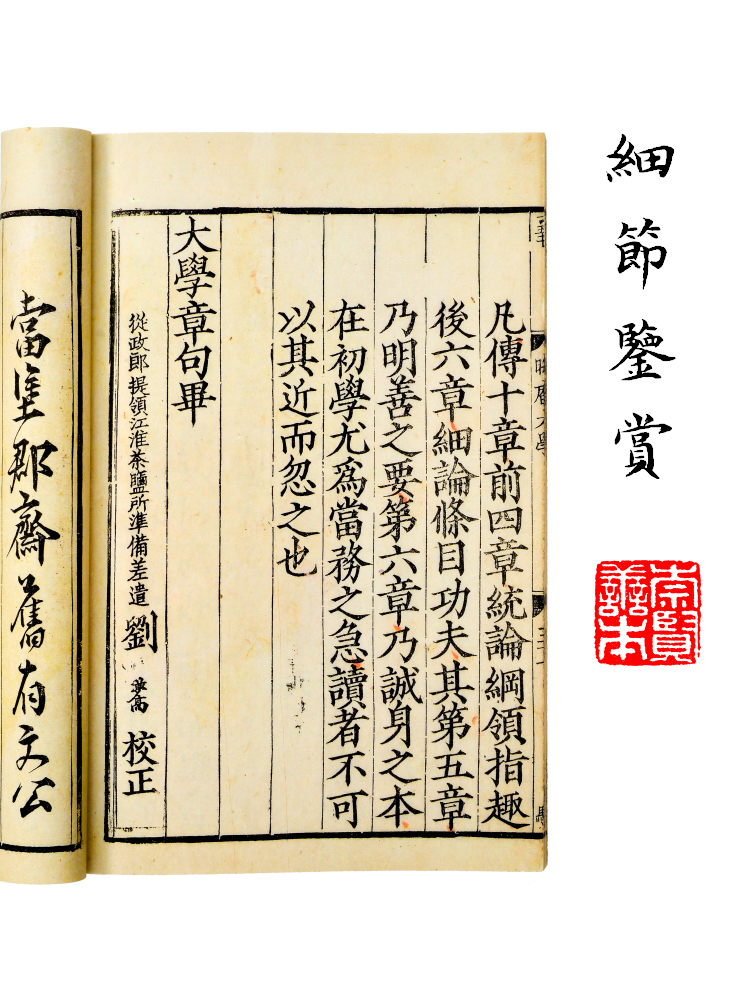 細節鑒賞
崇賢善本
凡傳十章前四章統論綱領指趣
後六章細論條目功夫其第五章
乃明善之要第六章乃誠身之本
在初學尤爲當務之急讀者不可
以其近而忽之也
大學章句畢
從政郎提領江淮茶鹽所準備差遣劉校正
當塗郡齋舊有文公